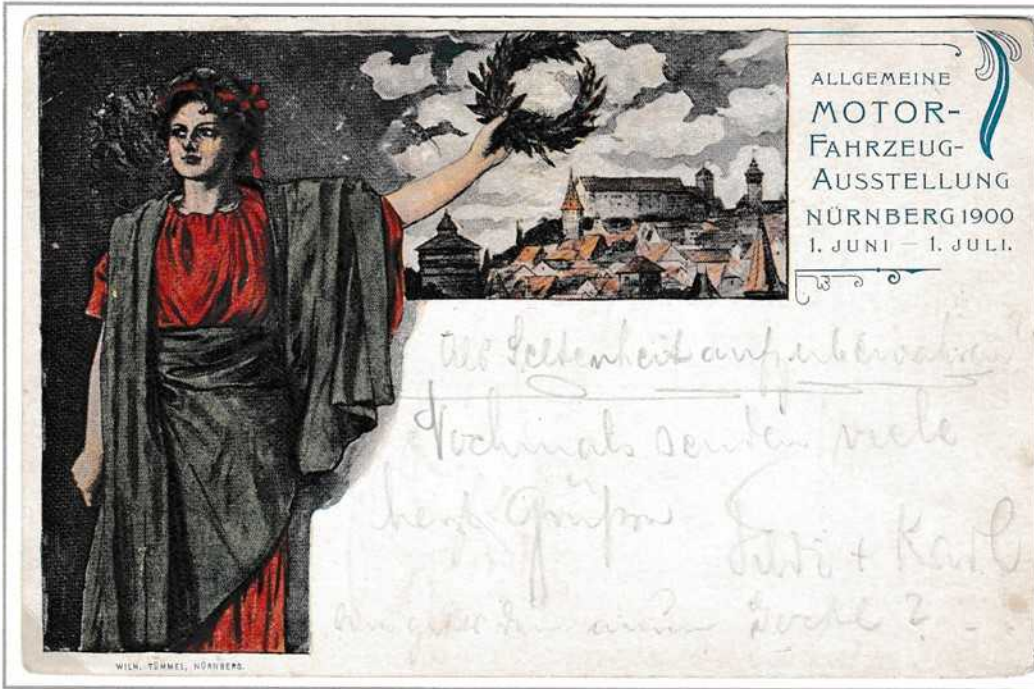 ALLGEMEINE
MOTOR-
FAHRZEUG-
AUSSTELLUNG
NÜRNBERG 1900
1. JUNI — 1. JULI.
Als Seltenheit aufzubewahren
Nochmals senden viele
herzl. Grüße
+ Karl
?
WILH. TÜMMEL, NÜRNBERG.